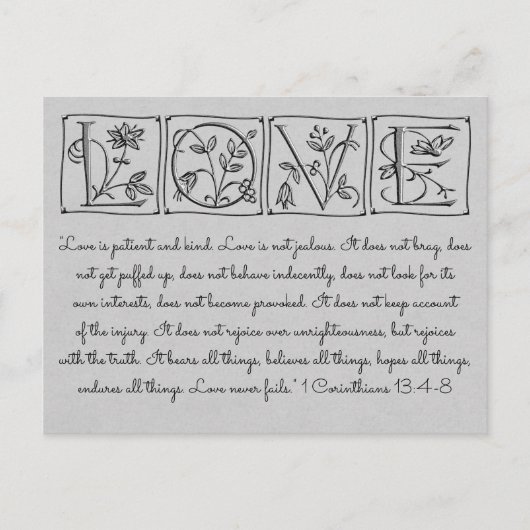 LOVE
"Love is patient and kind. Love is not jealous. It does not brag, does
not get puffed up, does not behave indecently, does not look for its
own interests, does not become provoked. It does not keep account
of the injury. It does not rejoice over unrighteousness, but rejoices
with the truth. It bears all things, believes all things, hopes all things,
endures all things. Love never fails." 1 Corinthians 13:4-8